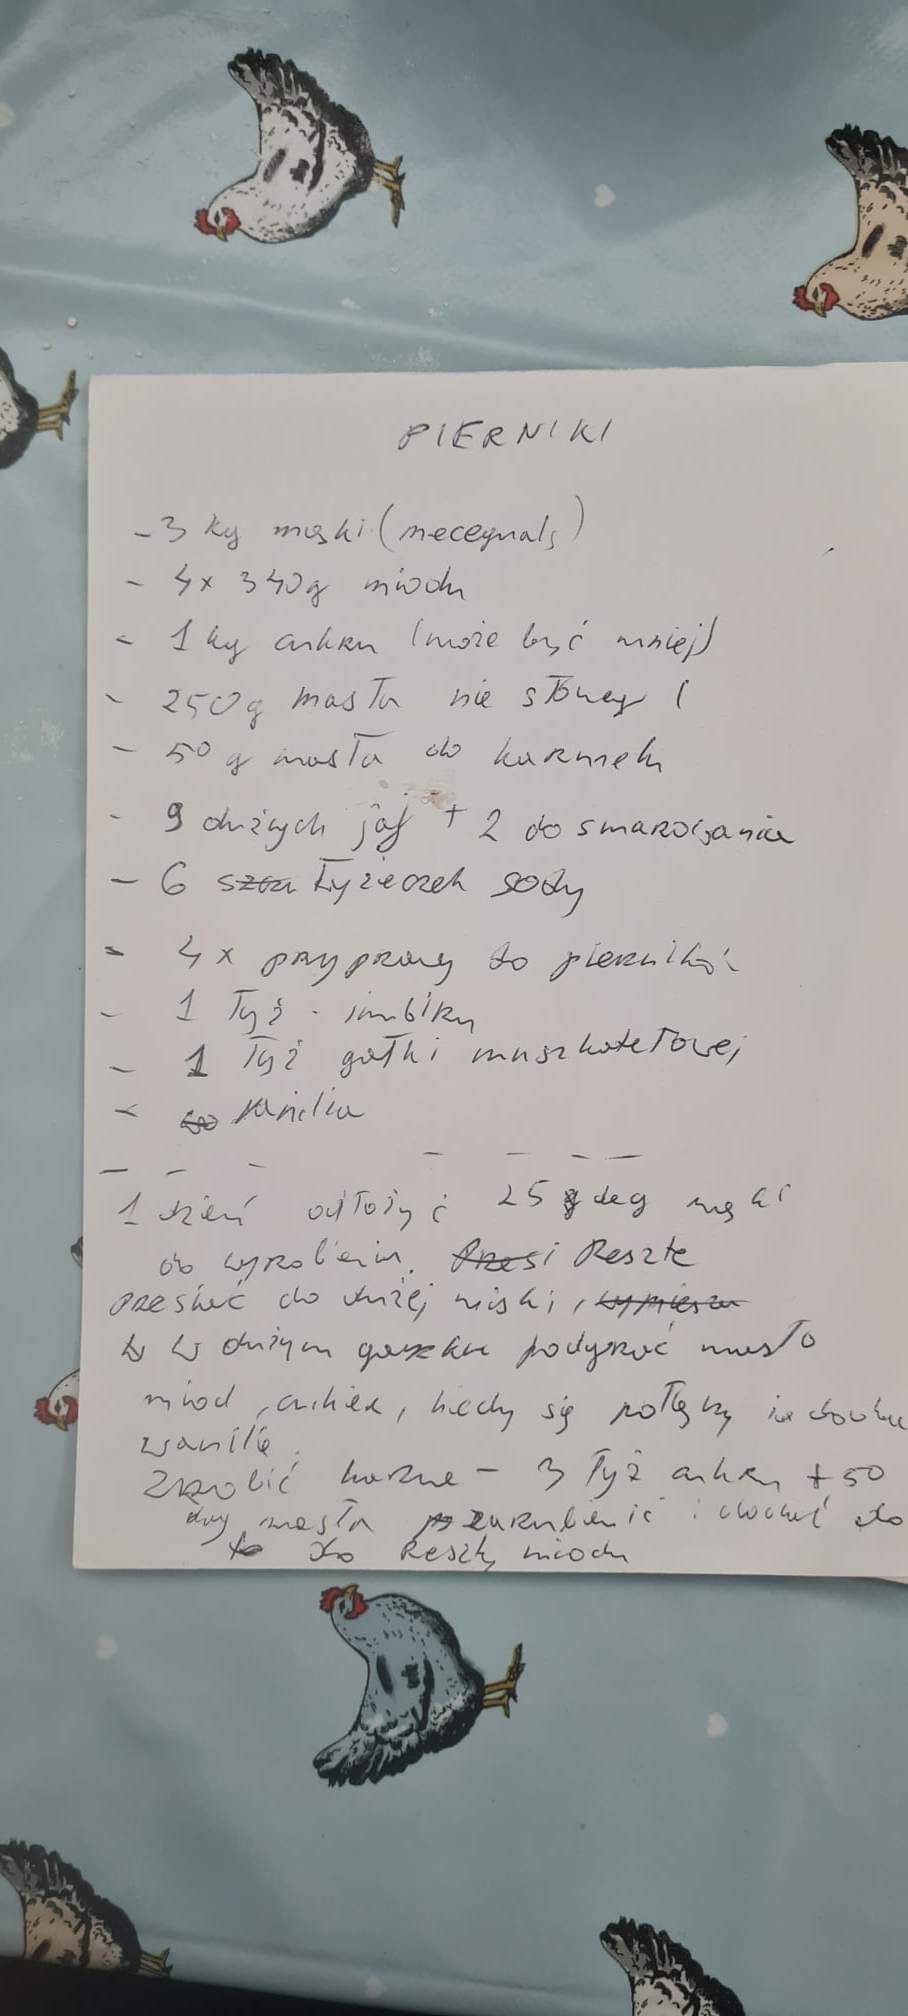 PIERNIKI
- 3 kg mąki (niecegnals)
- 4x 340g miodu
- 1 kg cukru (może być mniej)
- 250g masła nie słonego (
- 50 g masła do karmelu
- 9 dużych jaj + 2 do smarowania
- 6 łyżeczek sody
- 4x przyprawy do pierników
- 1 łyż. imbiru
- 1 łyż gałki muszkatołowej
- wanilia
1 dzień odłożyć 25 deg mąki
do wyrobienia. Resztę
przesiać do dużej miski,
W dużym garnku podgrzać masło
miód, cukier, kiedy się połączy
wanilię.
Zrobić karmel - 3 łyż cukru + 50
masła i dodać do
do reszty miodu